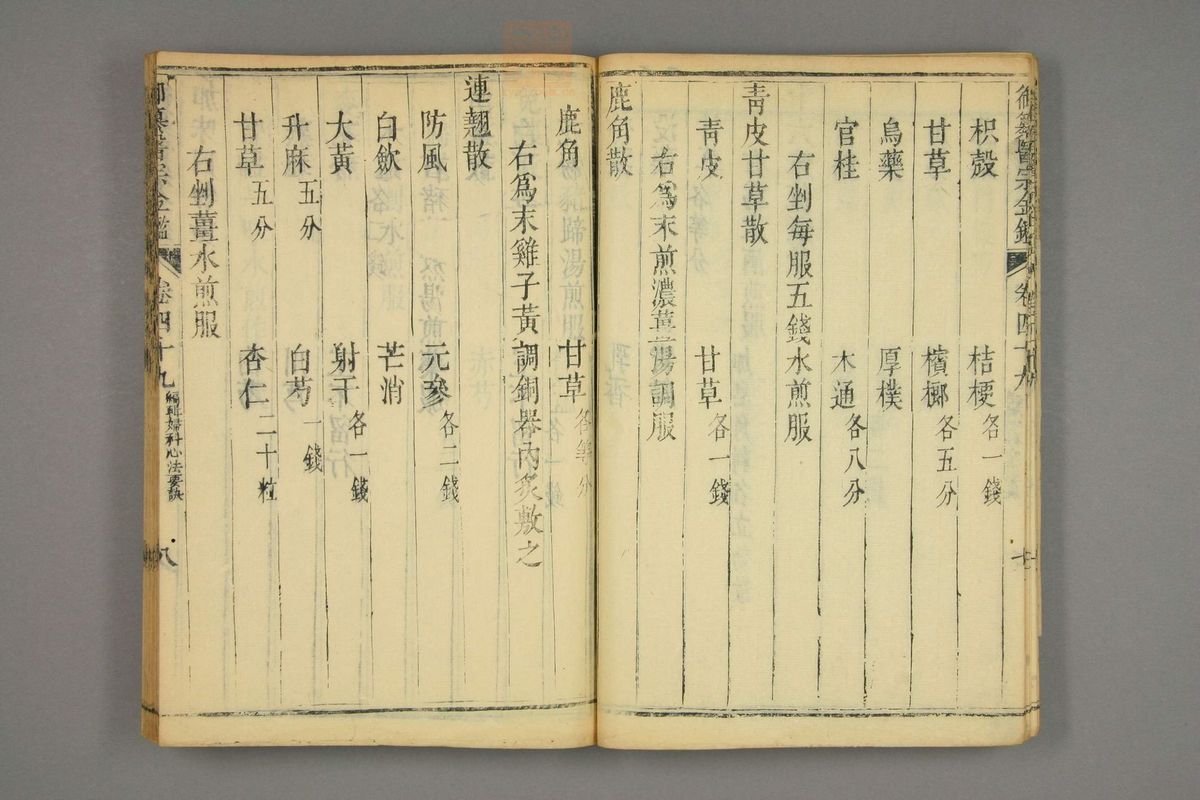 御纂醫宗金鑑 卷四十九 七
枳殼 桔梗各一錢
甘草 檳榔各五分
烏藥 厚樸
官桂 木通各八分
右剉每服五錢水煎服
青皮甘草散
青皮 甘草各一錢
右爲末煎濃薑湯調服
鹿角散
鹿角 甘草各等分
右爲末雞子黃調銅器內炙敷之
連翹散
防風 元參各二錢
白歛 芒消
大黃 射干各一錢
升麻五分 白芍一錢
甘草五分 杏仁二十粒
右剉薑水煎服
御纂醫宗金鑑 卷四十九 編輯婦科心法要訣 八